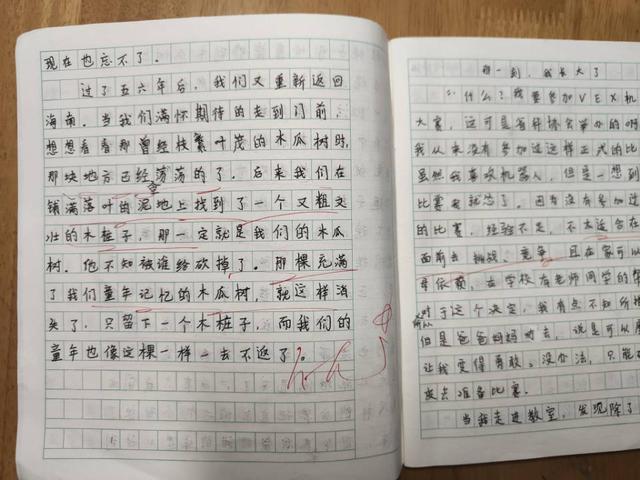 现在也忘不了。
过了五六年后，我们又重新返回
海南。当我们满怀期待的走到门前，
想想看看那曾经枝繁叶茂的木瓜树时，
那块地方已经空荡荡的了。后来我们在
铺满落叶的泥地上找到了一个又粗又
壮的木桩子，那一定就是我们的木瓜
树。他不知被谁给砍掉了。那棵充满
了我们童年记忆的木瓜树，就这样消
失了，只留下一个木桩子，而我们的
童年也像这棵一样一去不返了。
那一刻，我长大了
什么？我要参加VEX机
大赛，这可是省科协会举办的啊
我从来没有参加过这样正式的比
虽然我喜欢机器人，但是一想到
比赛我就怂了。因为没有参加过
的比赛，经验不足，不太适合在
面前去挑战、竞争，且在家可以
依赖，在学校有老师同学的帮
对于这个决定，我有点不知所措
所以
但是爸爸妈妈劝去，说是可以
让我变得勇敢。没办法，只能
去准备比赛。
当我走进教室，发现除了